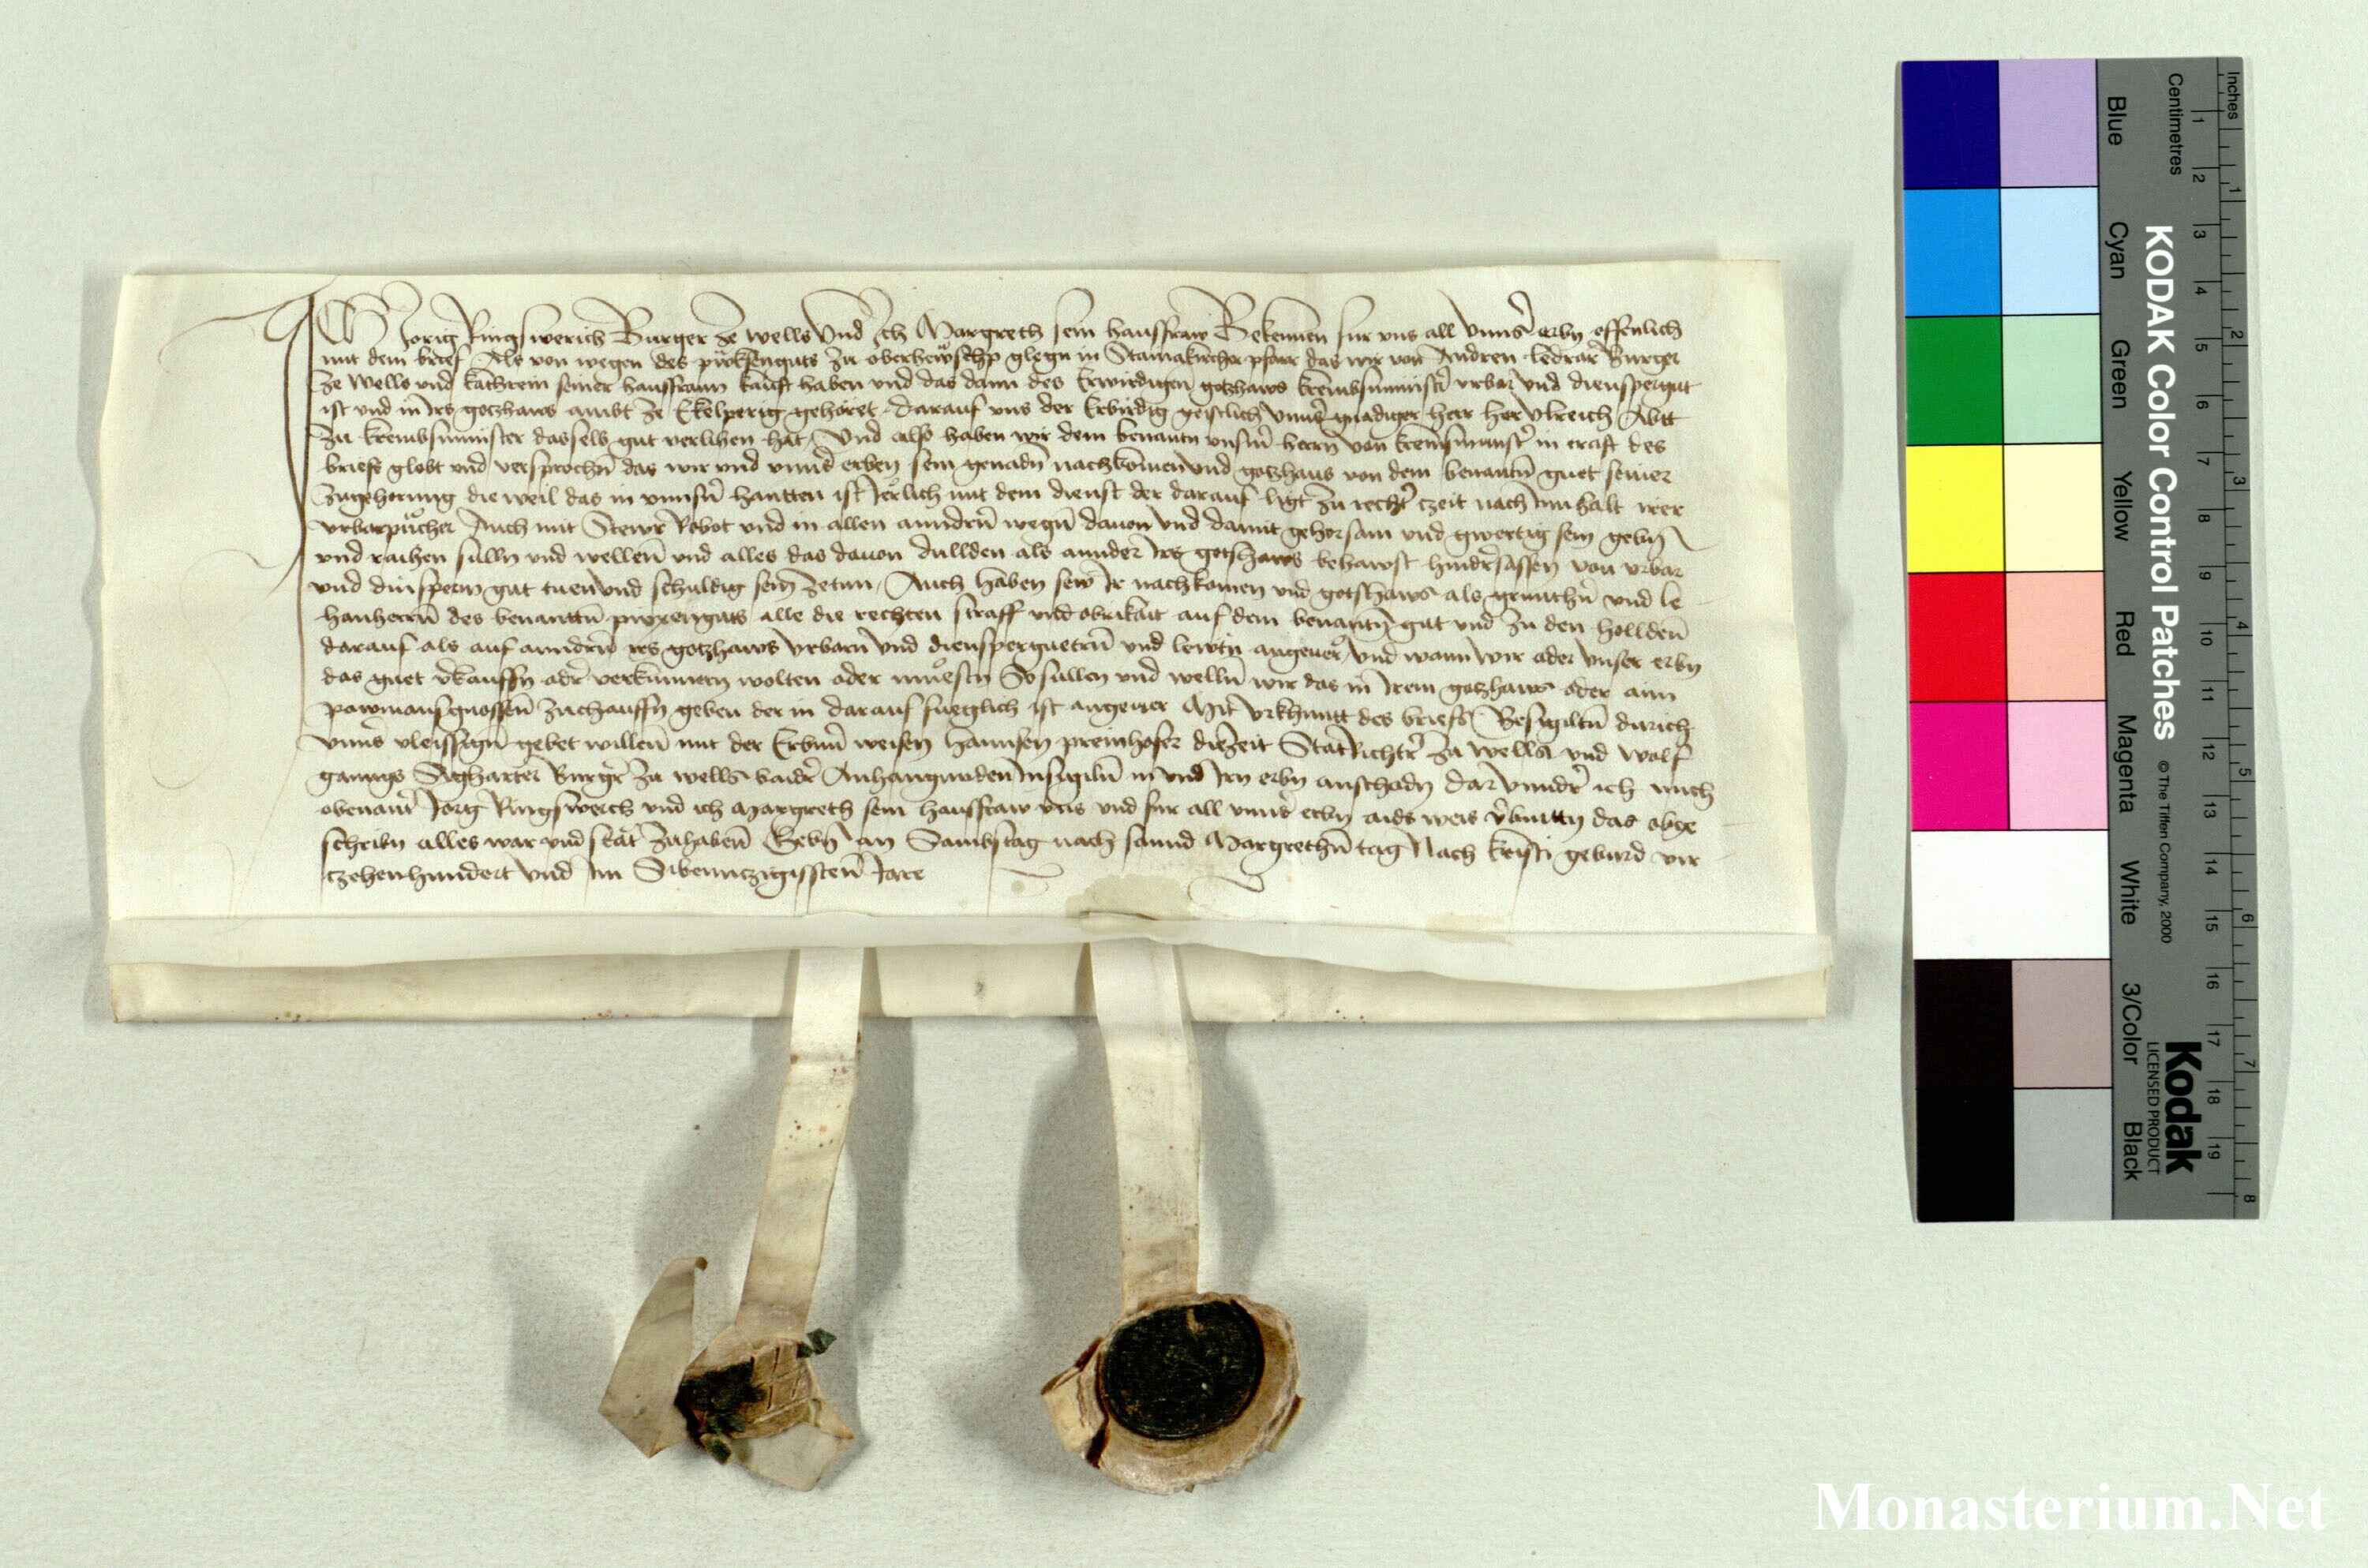 Ich Jorig Ringswerich Burger ze wells Vnd Ich Margreth sein hausfraw Bekennen fur vns all Vnnsr̄ erbn offenlich
mit dem brief Als von wegen des püxsenguts zu oberhewschp glegn in Stainakircher pfarr das wir von Andren ledrar̄ Burger
ze Wells vnd kathrein seiner hausfraun kaufft haben vnd das dann des Erwirdigen gotzhaws krembsmunstr̄ vrbar vnd dienspergut
ist vnd in Irs gotzhaws ambt ze Ekelperig gehöret darauf vns der Erbirdig geistlich Vnnsr̄ gnadiger herr her Vlreich Abtt
zu krembsmunster dasselb gut verlihen hat Vnd also haben wir dem benantn vnsm̄ herrn von kremsmunstr̄ in craft des
briefs globt vnd versprochn̄ das wir vnd vnnsr̄ erben sein genadn̄ nachkomen vnd gotzhaus von dem benantn̄ guet seiner
zugehorung die weil das in vnnsn̄ hantten ist Jerlich mit dem dienst der darauf ligt zu rechtr̄ czeit nach Innhalt irer
vrbarpůcher Auch mit Stewr Robot vnd in allen anndrn̄ wegn̄ dauon vnd damit gehorsam vnd gwertig sein gebn̄
vnd raihen sulln vnd wellen̄ vnd alles das dauon dullden als annder Irs gotshaws behawst hindrsassen von vrbar
vnd dinspern gut tuen vnd schuldig sein zetun Auch haben sew Ir nachkomen vnd gotshaws als gruntherr̄ vnd le
hanherrn̄ des benanttn̄ püxenguts alle die rechten straff vnd obrikait auf dem benantn̄ gut vnd zu den hollden̄
darauf als auf anndrn̄ irs gotzhaws Vrbarn vnd diensperguetrn̄ vnd lewtn angeuer Vnd wann wir oder Vnser erbn
das guet v̄kauffn odr̄ verkumern wolten oder muestn So sullen vnd welln̄ wir das in Irem gotzhaws oder aim
pawmansgnossen̄ zuchauffn geben der in darauf fueglich ist angeuer Mit Vrkhuntt des briefs Besigiltn̄ durich
Vnnsr̄ vleissign̄ gebet willen̄ mit der Erbm̄ weisen Hannsen preinhofer diezeit StatRichtr̄ zu wells vnd Wolf
ganngs Aigharter Burgr̄ zu wells baidr̄ Anhangunden Insigiln̄ in vnd Irn erbn anschadn Dar Vnndr̄ ich mich
obenantr̄ Jorg Ringswerich vnd ich Margreth sein hausfraw vns vnd fur all vnnsr̄ erbn aids weis v̄bintn das obge
schribn alles war vnd stät zuhaben̄ Gebn̄ an Sambstag nach sannd Margrethn̄ tag Nach kristi geburd vir
czehenhundert vnd Im Sibennczigissten̄ Jare
Inches
Centimetres
1 2 3 4 5 6 7 8 9 10 11 12 13 14 15 16 17 18 19
1 2 3 4 5 6 7 8
KODAK Color Control Patches
© The Tiffen Company, 2000
Kodak
LICENSED PRODUCT
Blue
Cyan
Green
Yellow
Red
Magenta
White
3/Color
Black
Monasterium.Net